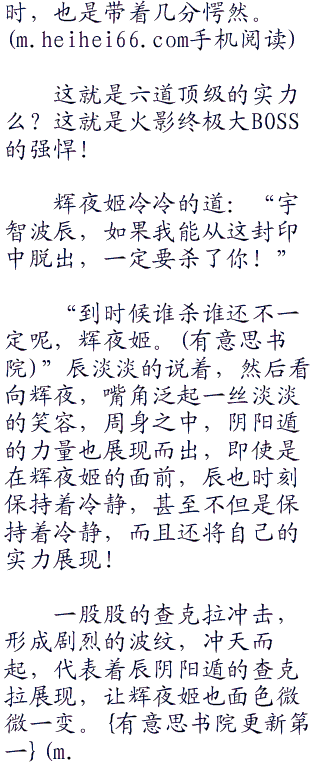 时，也是带着几分愕然。
(m.heihei66.com手机阅读)
这就是六道顶级的实力
么？这就是火影终极大BOSS
的强悍！
辉夜姬冷冷的道：“宇
智波辰，如果我能从这封印
中脱出，一定要杀了你！”
“到时候谁杀谁还不一
定呢，辉夜姬。(有意思书
院)”辰淡淡的说着，然后看
向辉夜，嘴角泛起一丝淡淡
的笑容，周身之中，阴阳遁
的力量也展现而出，即使是
在辉夜姬的面前，辰也时刻
保持着冷静，甚至不但是保
持着冷静，而且还将自己的
实力展现！
一股股的查克拉冲击，
形成剧烈的波纹，冲天而
起，代表着辰阴阳遁的查克
拉展现，让辉夜姬也面色微
微一变。{有意思书院更新第
一}(m.